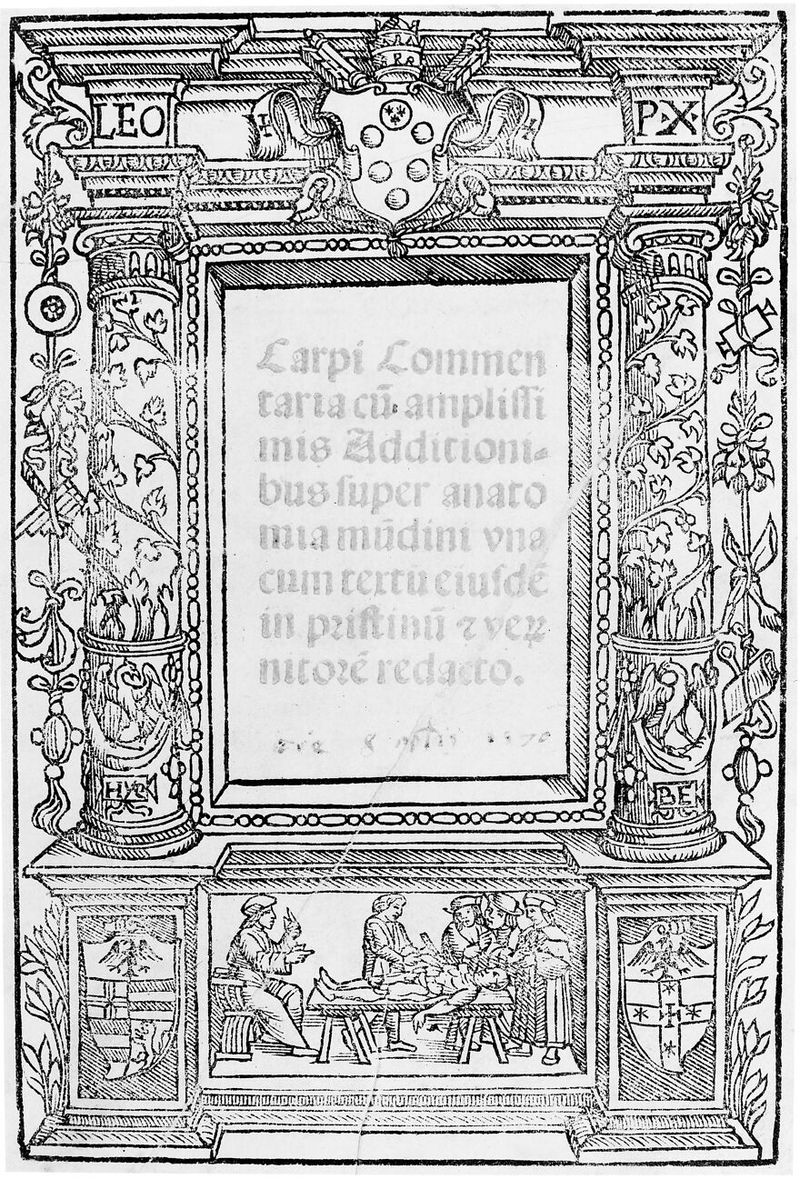 LEO
P·X·
Carpi Commen
taria cū ampliſſi
mis Additioni⸗
bus ſuper anato
mia mūdini vna
cum textū eiuſdē
in priſtinū ⁊ veꝝ
nitorē redacto.
BE